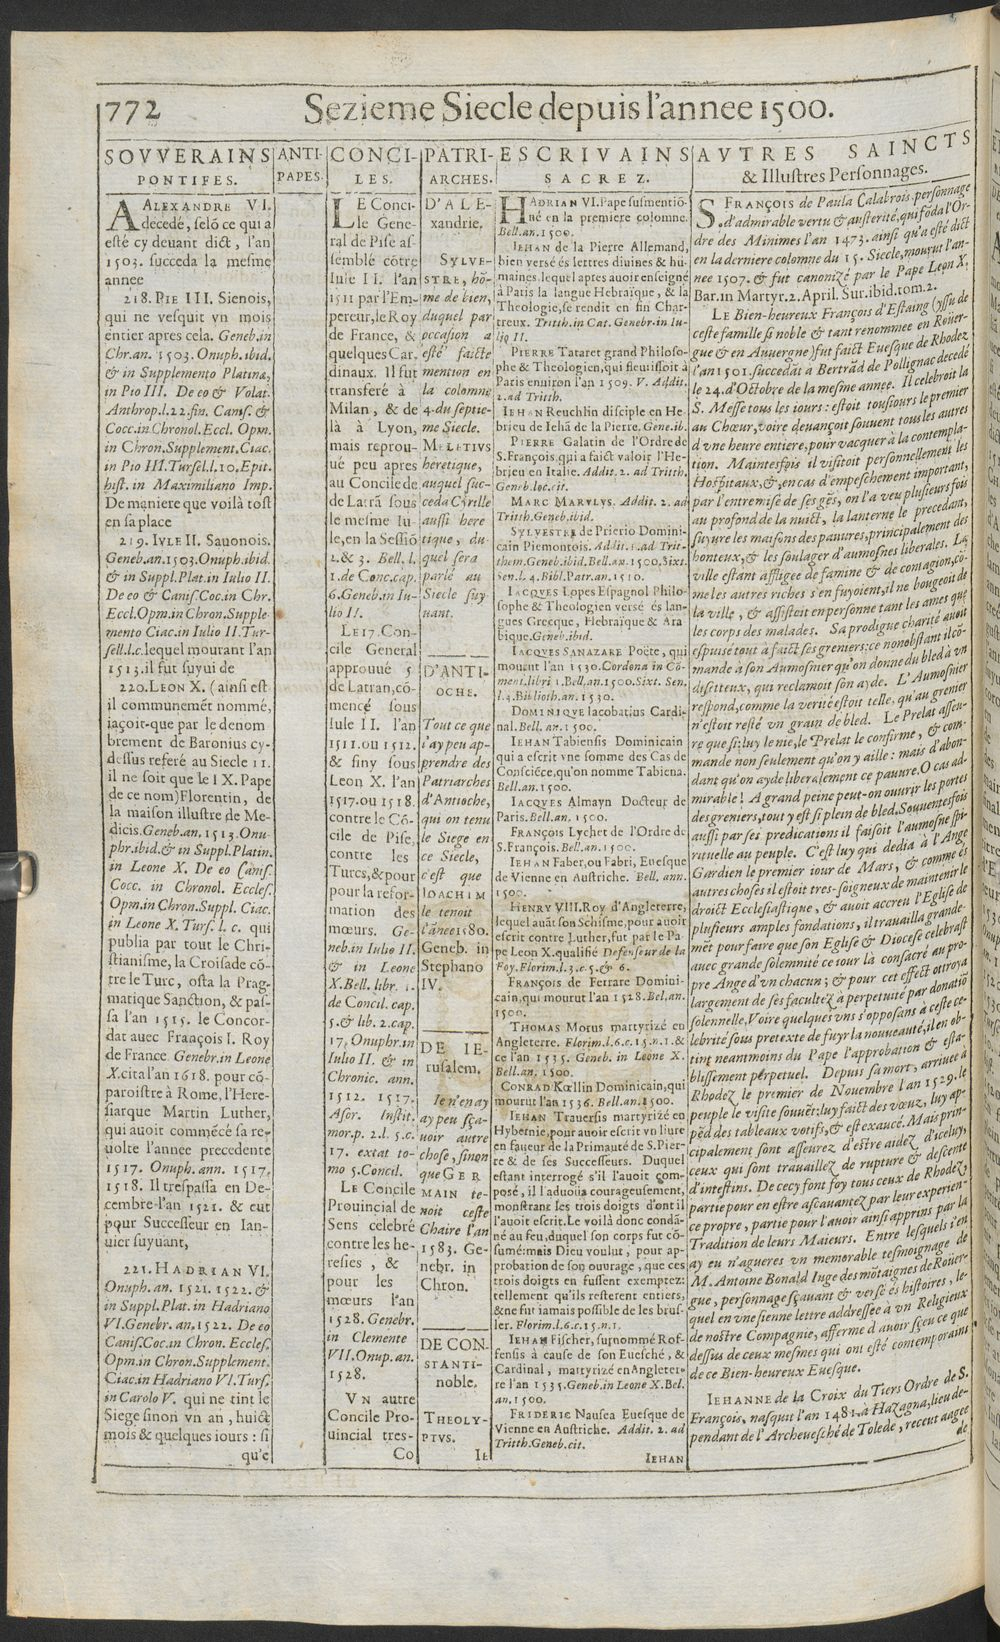 772
Sezieme Siecle depuis l'annee 1500.
SOVVERAINS
PONTIFES.
AALEXANDRE VI.
decedé, selõ ce qui a
esté cy deuant dict, l'an
1503. succeda la mesme
annee
218. PIE III. Sienois,
qui ne vesquit vn mois
entier apres cela. Geneb.in
Chr.an. 1503. Onuph. ibid.
& in Supplemento Platinæ,
in Pio III. De eo & Volat.
Anthrop.l.22.fin. Canis. &
Cocc.in Chronol. Eccl. Opm.
in Chron.Supplement. Ciac.
in Pio III. Tursel.l.10.Epit.
hist. in Maximiliano Imp.
De maniere que voilà tost
en sa place
219. IVLE II. Sauonois.
Geneb.an.1503.Onuph.ibid.
& in Suppl.Plat.in Iulio II.
De eo & Canis.Coc.in Chr.
Eccl.Opm.in Chron.Supple-
mento Ciac.in Iulio II.Tur-
sell.l.c.lequel mourant l'an
1513.il fut suyui de
220.LEON X. (ainsi est
il communemẽt nommé,
iaçoit-que par le denom
brement de Baronius cy-
dessus referé au Siecle 11.
il ne soit que le IX. Pape
de ce nom) Florentin, de
la maison illustre de Me-
dicis.Geneb.an.1513.Onu
phr.ibid.& in Suppl.Platin.
in Leone X. De eo Canis.
Cocc. in Chronol. Eccles.
Opm.in Chron.Suppl. Ciac.
in Leone X. Turs. l. c. qui
publia par tout le Chri-
stianisme, la Croisade cõ-
tre le Turc, osta la Prag-
matique Sanction, & pas-
sa l'an 1515. le Concor-
dat auec François I. Roy
de France. Genebr.in Leone
X.cita l'an 1618. pour cõ-
paroistre à Rome, l'Here-
siarque Martin Luther,
qui auoit commẽcé sa re-
uolte l'annee precedente
1517. Onuph. ann. 1517.
1518. Il trespassa en De-
cembre l'an 1521. & eut
pour Successeur en Ian-
uier suyuant,
221. HADRIAN VI.
Onuph. an. 1521. 1522. &
in Suppl. Plat. in Hadriano
VI.Genebr. an. 1522. De eo
Canis.Coc.in Chron. Eccles.
Opm.in Chron.Supplement.
Ciac.in Hadriano VI.Turs.
in Carolo V. qui ne tint le
Siege sinon vn an, huict
mois & quelques iours : si
qu'e
ANTI-
PAPES.
CONCI-
LES.
LE Conci-
le Gene-
ral de Pise as-
semblé cõtre
Iule II. l'an
1511 par l'Em-
pereur, le Roy
de France, &
quelques Car-
dinaux. Il fut
transferé à
Milan, & de
là à Lyon,
mais reprou-
ué peu apres
au Concile de
de Latrã sous
le mesme Iu-
le, en la Sessiõ
2. & 3. Bell. l.
1.de Conc.cap.
6.Geneb.in Iu-
lio II.
LE 17. Con-
cile General
approuué 5
de Latran, cõ-
mencé sous
Iule II. l'an
1511.ou 1512.
& finy sous
Leon X. l'an
1517.ou 1518.
contre le Cõ-
cile de Pise,
contre les
Turcs, & pour
pour la refor-
mation des
mœurs. Ge-
neb.in Iulio II.
& in Leone
X.Bell. libr. 1.
de Concil. cap.
5.& lib. 2.cap.
17. Onuphr.in
Iulio II. & in
Chronic. ann.
1512. 1517.
Asor. Instit.
mor.p. 2.l. 5.c.
17. extat to-
mo 5.Concil.
LE Concile
Prouincial de
Sens celebré
contre les he-
resies, &
pour les
mœurs l'an
1528. Genebr.
in Clemente
VII.Onup.an.
1528.
VN autre
Concile Pro-
uincial tres-
Co
PATRI-
ARCHES.
D'ALE-
xandrie.
SYLVE-
STRE, hõ-
me de bien,
duquel par
occasion a
esté faicte
mention en
la colomne
4. du septie-
me Siecle.
MELETIVS
heretique,
auquel suc-
ceda Cyrille
aussi here
tique, du-
quel sera
parlé au
Siecle suy
uant.
D'ANTI-
OCHE.
Tout ce que
i'ay peu ap-
prendre des
Patriarches
d'Antioche,
qui on tenu
le Siege en
ce Siecle,
c'est que
IOACHIM
le tenoit
l'ãnee 1580.
Geneb. in
Stephano
IV.
DE IE-
rusalem.
Ie n'en ay
ay peu sça-
uoir autre
chose, sinon
que GER
MAIN te-
noit ceste
Chaire l'an
1583. Ge-
nebr. in
Chron.
DE CON-
STANTI-
noble.
THEOLY-
PTVS.
IE
ESCRIVAINS
SACREZ.
HADRIAN VI.Pape susmentiõ-
né en la premiere colomne.
Bell.an.1500.
IEHAN de la Pierre Allemand,
bien versé és lettres diuines & hu-
maines, lequel apres auoir enseigné
à Paris la langue Hebraïque, & la
Theologie, se rendit en fin Char-
treux. Trith.in Cat. Genebr.in Iu-
lio II.
PIERRE Tataret grand Philoso-
phe & Theologien, qui fleurissoit à
Paris enuiron l'an 1509. V. Addit.
2.ad Trith.
IEHAN Reuchlin disciple en He-
brieu de Iehã de la Pierre. Gene.ib.
PIERRE Galatin de l'Ordre de
S.François, qui a faict valoir l'He-
brieu en Italie. Addit. 2. ad Tritth.
Geneb.loc.cit.
MARC MARVLVS. Addit. 2. ad
Tritth.Geneb.ibid.
SYLVESTRE de Prierio Domini-
cain Piemontois. Addit. 1.ad Trit-
them.Geneb.ibid.Bell.an.1500.Sixt.
Sen.l. 4. Bibl.Patr.an.1510.
IACQVES Lopes Espagnol Philo-
sophe & Theologien versé és lan-
gues Grecque, Hebraïque & Ara
bique.Geneb.ibid.
IACQVES SANAZARE Poëte, qui
mourut l'an 1530.Cordona in Cõ-
ment.libri 1.Bell.an.1500.Sixt. Sen.
l.4.Biblioth.an.1530.
DOMINIQVE Iacobatius Cardi-
nal. Bell. an. 1500.
IEHAN Tabiensis Dominicain
qui a escrit vne somme des Cas de
Consciẽce, qu'on nomme Tabiena.
Bell.an.1500.
IACQVES Almayn Docteur de
Paris.Bell.an. 1500.
FRANÇOIS Lychet de l'Ordre de
S.François. Bell.an.1500.
IEHAN Faber, ou Fabri, Euesque
de Vienne en Austriche. Bell. ann.
1500.
HENRY VIII.Roy d'Angleterre,
lequel auãt son Schisme, pour auoir
escrit contre Luther, fut par le Pa-
pe Leon X.qualifié Defenseur de la
Foy.Florim.l.3.c.5.& 6.
FRANÇOIS de Ferrare Domini-
cain, qui mourut l'an 1528.Bel.an.
1500.
THOMAS Morus martyrizé en
Angleterre. Florim.l.6.c.15.n.1.&
ce l'an 1535. Geneb. in Leone X.
Bell.an. 1500.
CONRAD Kœllin Dominicain, qui
mourut l'an 1536. Bell.an.1500.
IEHAN Trauersis martyrizé en
Hybernie, pour auoir escrit vn liure
en faueur de la Primauté de S.Pier-
re & de ses Successeurs. Duquel
estant interrogé s'il l'auoit com-
posé, il l'aduoüa courageusement,
monstrant les trois doigts d'ont il
l'auoit escrit. Le voilà donc condã-
né au feu, duquel son corps fut cõ-
sumé: mais Dieu voulut, pour ap-
probation de son ouurage, que ces
trois doigts en fussent exemptez:
tellement qu'ils resterent entiers,
& ne fut iamais possible de les brus-
ler. Florim.l.6.c.15.n.1.
IEHAN Fischer, surnommé Rof-
fensis à cause de son Euesché, &
Cardinal, martyrizé en Angleter-
re l'an 1535.Geneb.in Leone X.Bel.
an.1500.
FRIDERIC Nausea Euesque de
Vienne en Austriche. Addit. 2. ad
Tritth.Geneb.cit.
IEHAN
AVTRES SAINCTS
& Illustres Personnages.
S. FRANÇOIS de Paula Calabrois, personnage
d'admirable vertu & austerité, qui fõda l'Or-
dre des Minimes l'an 1473. ainsi qu'a esté dict
en la derniere colomne du 15. Siecle, mourut l'an-
nee 1507. & fut canonizé par le Pape Leon X.
Bar.in Martyr.2.April. Sur.ibid.tom.2.
LE Bien-heureux François d'Estaing (yssu de
ceste famille si noble & tant renommee en Rouër-
gue & en Auuergne) fut faict Euesque de Rhodez
l'an 1501. succedãt à Bertrãd de Pollignac decedé
le 24. d'Octobre de la mesme annee. Il celebroit la
S. Messe tous les iours : estoit tousiours le premier
au Chœur, voire deuançoit souuent tous les autres
d'vne heure entiere, pour vacquer à la contempla-
tion. Maintesfois il visitoit personnellement les
Hospitaux, & en cas d'empeschement important,
par l'entremise de ses gẽs, on l'a veu plusieurs fois
au profond de la nuict, la lanterne le precedant,
suyure les maisons des pauures, principalement des
honteux, & les soulager d'aumosnes liberales. La
ville estant affligee de famine & de contagion, cõ-
me les autres riches s'en fuyoient, il ne bougeoit de
la ville, & assistoit en personne tant les ames que
les corps des malades. Sa prodigue charité auoit
espuisé tout à faict ses greniers: ce nonobstant il cõ-
mande à son Aumosnier qu'on donne du bled à vn
disetteux, qui reclamoit son ayde. L'Aumosnier
respond, comme la verité estoit telle, qu'au grenier
n'estoit resté vn grain de bled. Le Prelat asseu-
re que si: luy le nie, le Prelat le confirme, & com-
mande non seulement qu'on y aille : mais d'abon-
dant qu'on ayde liberalement ce pauure. O cas ad-
mirable! A grand peine peut-on ouurir les portes
des greniers, tout y est si plein de bled. Souuentesfois
aussi par ses predications il faisoit l'aumosne spi-
rituelle au peuple. C'est luy qui dedia à l'Ange
Gardien le premier iour de Mars, & comme és
autres choses il estoit tres-soigneux de maintenir le
droict Ecclesiastique, & auoit accreu l'Eglise de
plusieurs amples fondations, il trauailla grande-
mẽt pour faire que son Eglise & Diocese celebrast
auec grande solemnité ce iour là consacré au pro-
pre Ange d'vn chacun; & pour cet effect octroya
largement de ses facultez à perpetuité par donatiõ
solennelle, Voire quelques vns s'opposans à ceste ce-
lebrité sous pretexte de fuyr la nouueauté, il en ob-
tint neantmoins du Pape l'approbation & esta-
blissement perpetuel. Depuis sa mort, arriuee à
Rhodez le premier de Nouembre l'an 1529. le
peuple le visite souuẽt: luy faict des vœuz, luy ap-
pẽd des tableaux votifs, & est exaucé. Mais prin-
cipalement sont asseurez d'estre aidez d'iceluy,
ceux qui sont trauaillez de rupture & descente
d'intestins. De cecy font foy tous ceux de Rhodez,
partie pour en estre ascauantez par leur experien-
ce propre, partie pour l'auoir ainsi apprins par la
Tradition de leurs Maieurs. Entre lesquels i'en
ay eu n'agueres vn memorable tesmoignage de
M. Antoine Bonald Iuge des mõtaignes de Rouër-
gue, personnage sçauant & versé és histoires, le-
quel en vne sienne lettre addressée à vn Religieux
de nostre Compagnie, afferme d'auoir sçeu ce que
dessus de ceux mesmes qui ont esté contemporains
de ce Bien-heureux Euesque.
IEHANNE de la Croix du Tiers Ordre de S.
François, nasquit l'an 1481. à Hazagna, lieu de-
pendant de l'Archeuesché de Tolede, receut aagee
de